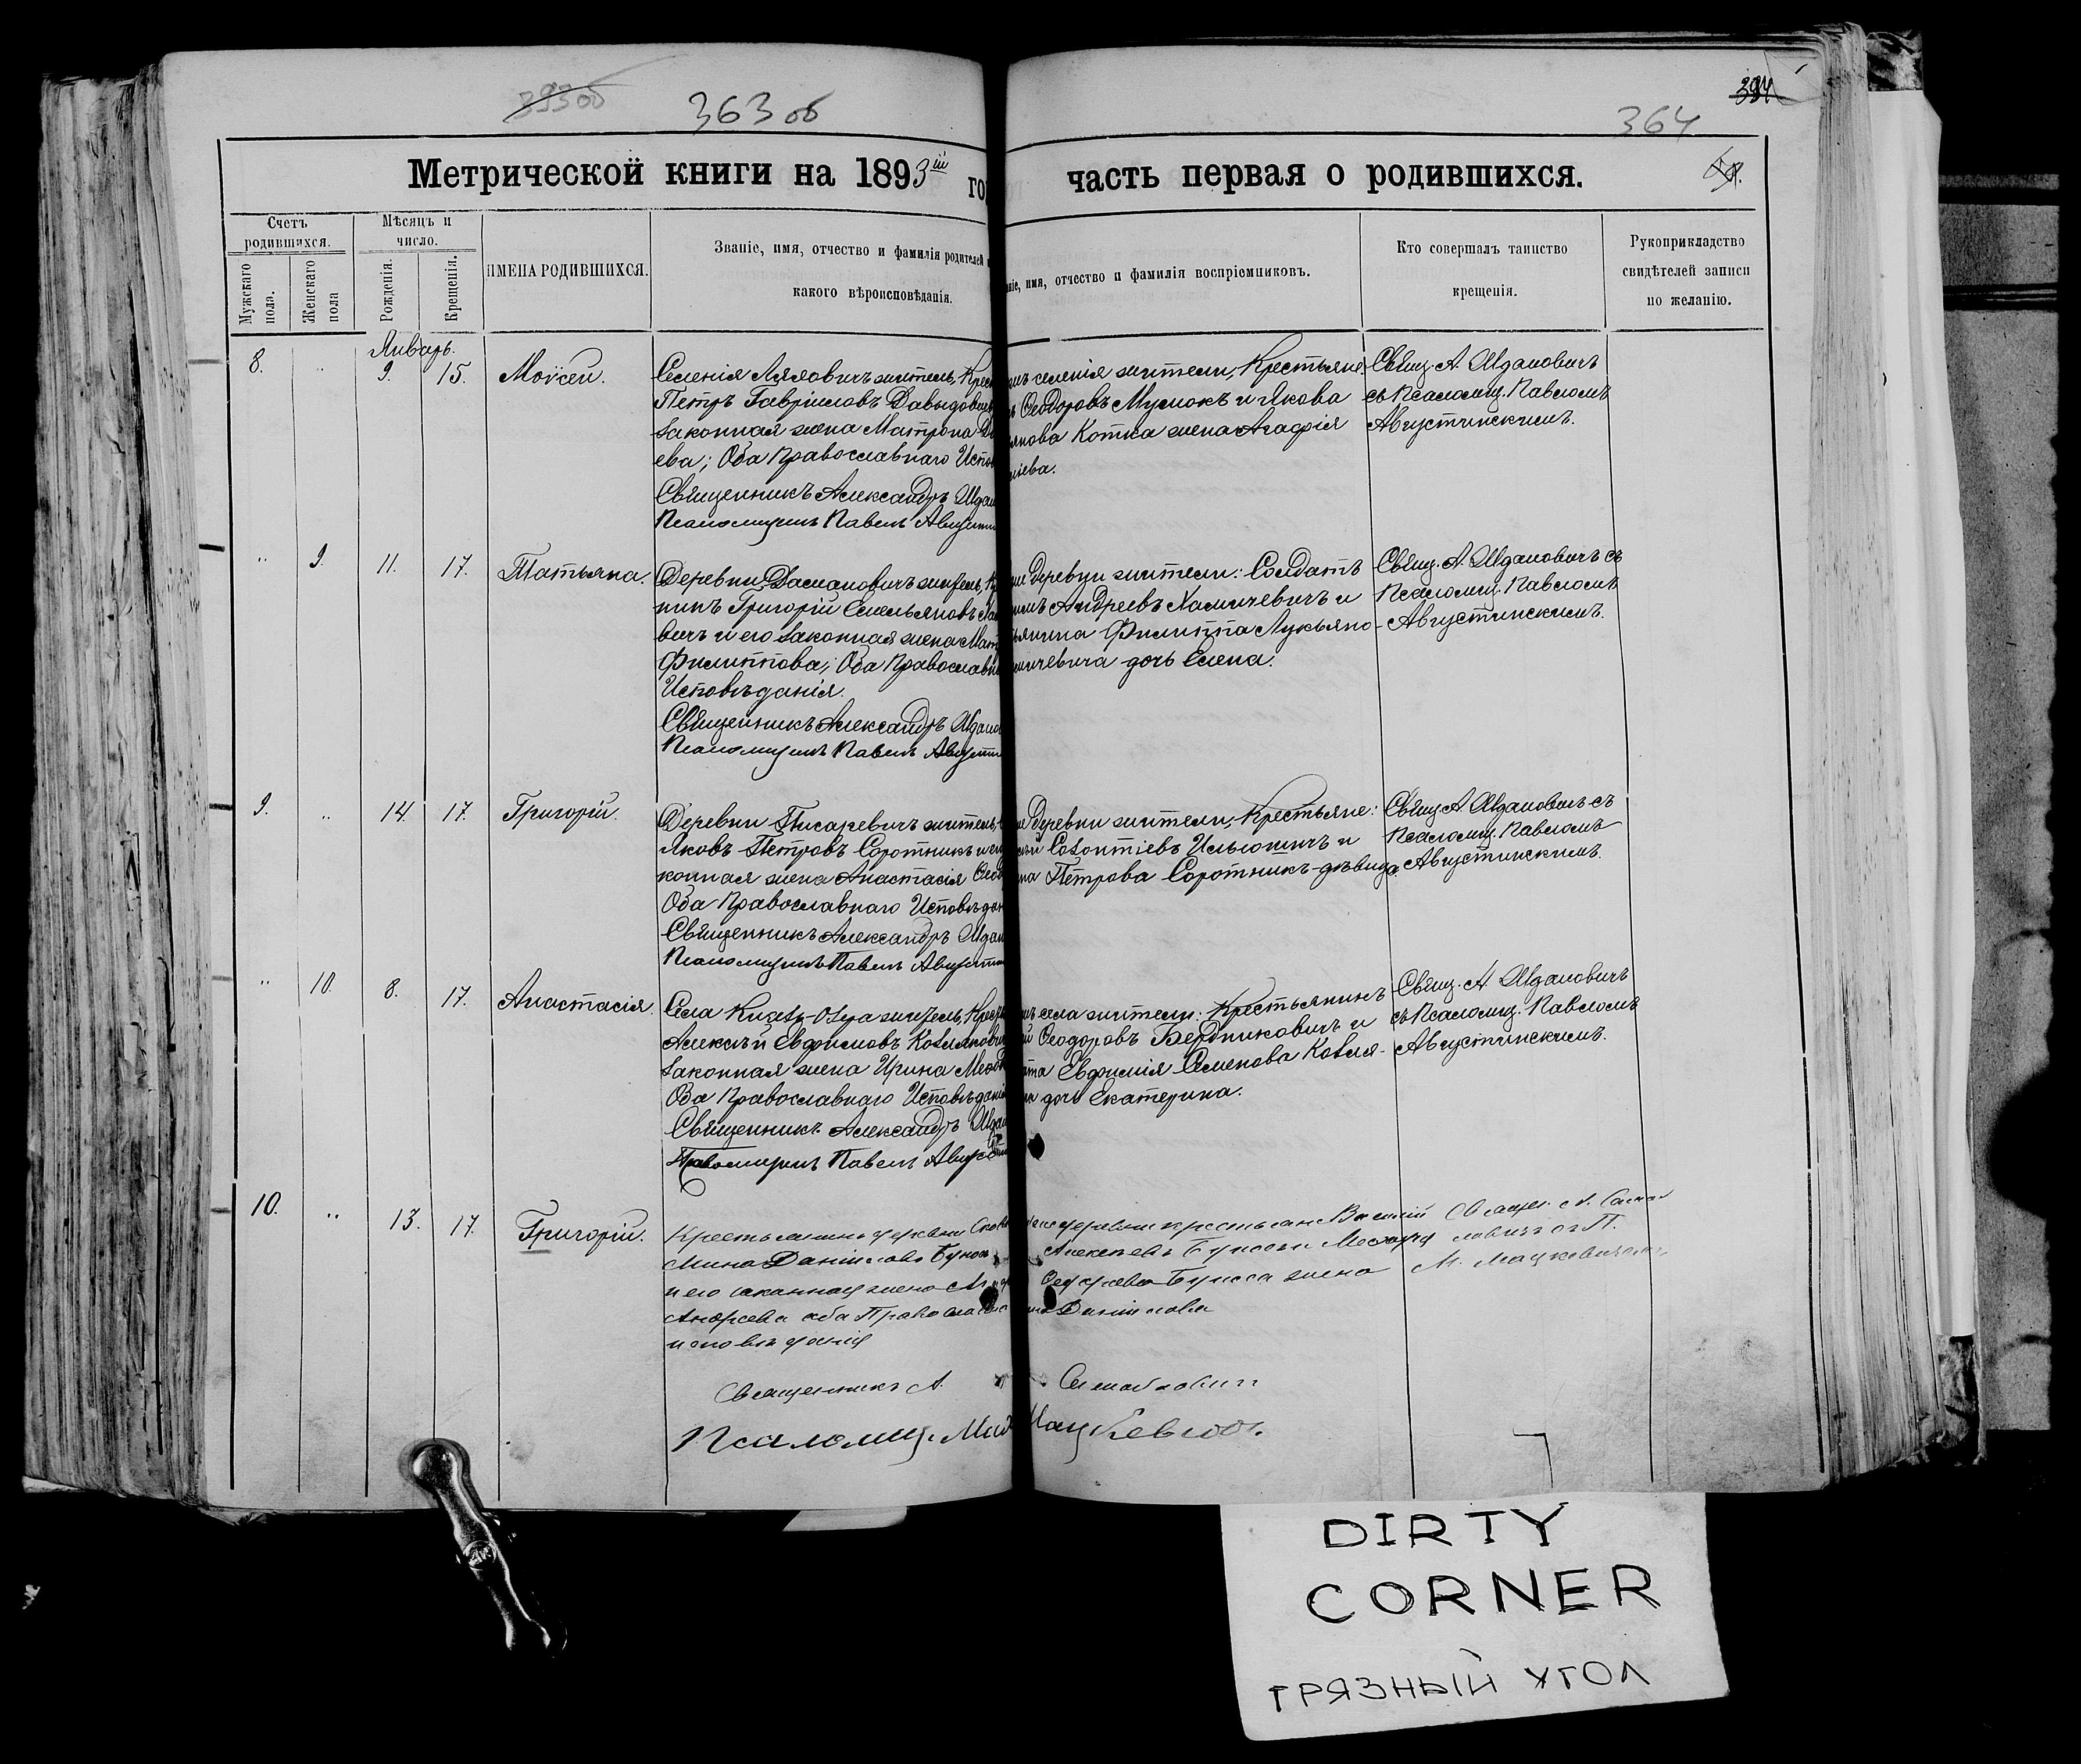 393 об
363 об
394
364
Метрической книги на 1893ій го
часть первая о родившихся.
Счетъ родившихся.
Мѣсяцъ и число.
Мужскаго пола.
Женскаго пола
Рожденія.
Крещенія.
ИМЕНА РОДИВШИХСЯ.
Званіе, имя, отчество и фамилія родителей и
какого вѣроисповѣданія.
ніе, имя, отчество и фамилія воспріемниковъ.
Кто совершалъ таинство
крещенія.
Рукоприкладство
свидѣтелей записи
по желанію.
Январь.
8. " 9. 15. Моѵсей.
Селенія Лядовичъ житель, Крес
Петръ Гавріиловъ Давыдович
законная жена Матрона
ева; Оба Православнаго Испов
Священникъ Александръ Ждан
Псаломщикъ Павелъ Августин
нъ селенія жители, Крестьяне:
Ѳеодоровъ Мулюкъ и Якова
Котка жена Агафія
ліева.
Свящ. А. Ждановичъ
съ Псаломщ. Павломъ
Августинскимъ.
" 9. 11. 17. Татьяна.
Деревни Даманович житель, Кр
нинъ Григорій Емельяновъ Хам
вичъ и его законная жена Мат
Филиппова; Оба Православн
Исповѣданія.
Священникъ Александръ Ждано
Псаломщикъ Павелъ Августи
Деревни жители: Солдатъ
Андреевъ Хамичевичъ и
Филиппа Лукьяно-
мичевича дочь Елена.
Свящ. А. Ждановичъ съ
Псаломщ. Павломъ
Августинскимъ.
9. " 14. 17. Григорій.
Деревни Писаревичъ житель,
Яковъ Петровъ Соротникъ и ег
конная жена Анастасія Ѳеод
Оба Православнаго Исповѣдан
Священникъ Александръ Ждан
Псаломщикъ Павелъ Августи
Деревни жители, Крестьяне:
Созонтіевъ Ильюшичъ и
на Петрова Соротникъ-дѣвица.
Свящ. А. Ждановичъ съ
Псаломщ. Павломъ
Августинскимъ.
" 10. 8. 17. Анастасія.
Села Князь-Озера житель, Кресть
Алексѣй Евфимовъ Козлякович
законная жена Ирина Меѳод
Оба Православнаго Исповѣданія
Священникъ Александръ Ждан
Псаломщикъ Павелъ Августин
села жители: Крестьянинъ
й Ѳеодоровъ Бердниковичъ и
Евфимія Семенова Козля-
дочь Екатерина.
Свящ. А. Ждановичъ
съ Псаломщ. Павломъ
Августинскимъ.
10. " 13. 17. Григорій.
Крестьянинъ деревни
Мина Даніиловъ
и его законная жена
Андреева оба Православна
исповѣданія
деревни крестьяне Василій
Алексѣевъ
жена
Даніилова
Священ. А.
съ П.
М. Мацкевичемъ
Священникъ А.
Псаломщ. М.
Мацкевичъ.
DIRTY
CORNER
ГРЯЗНЫЙ УГОЛ